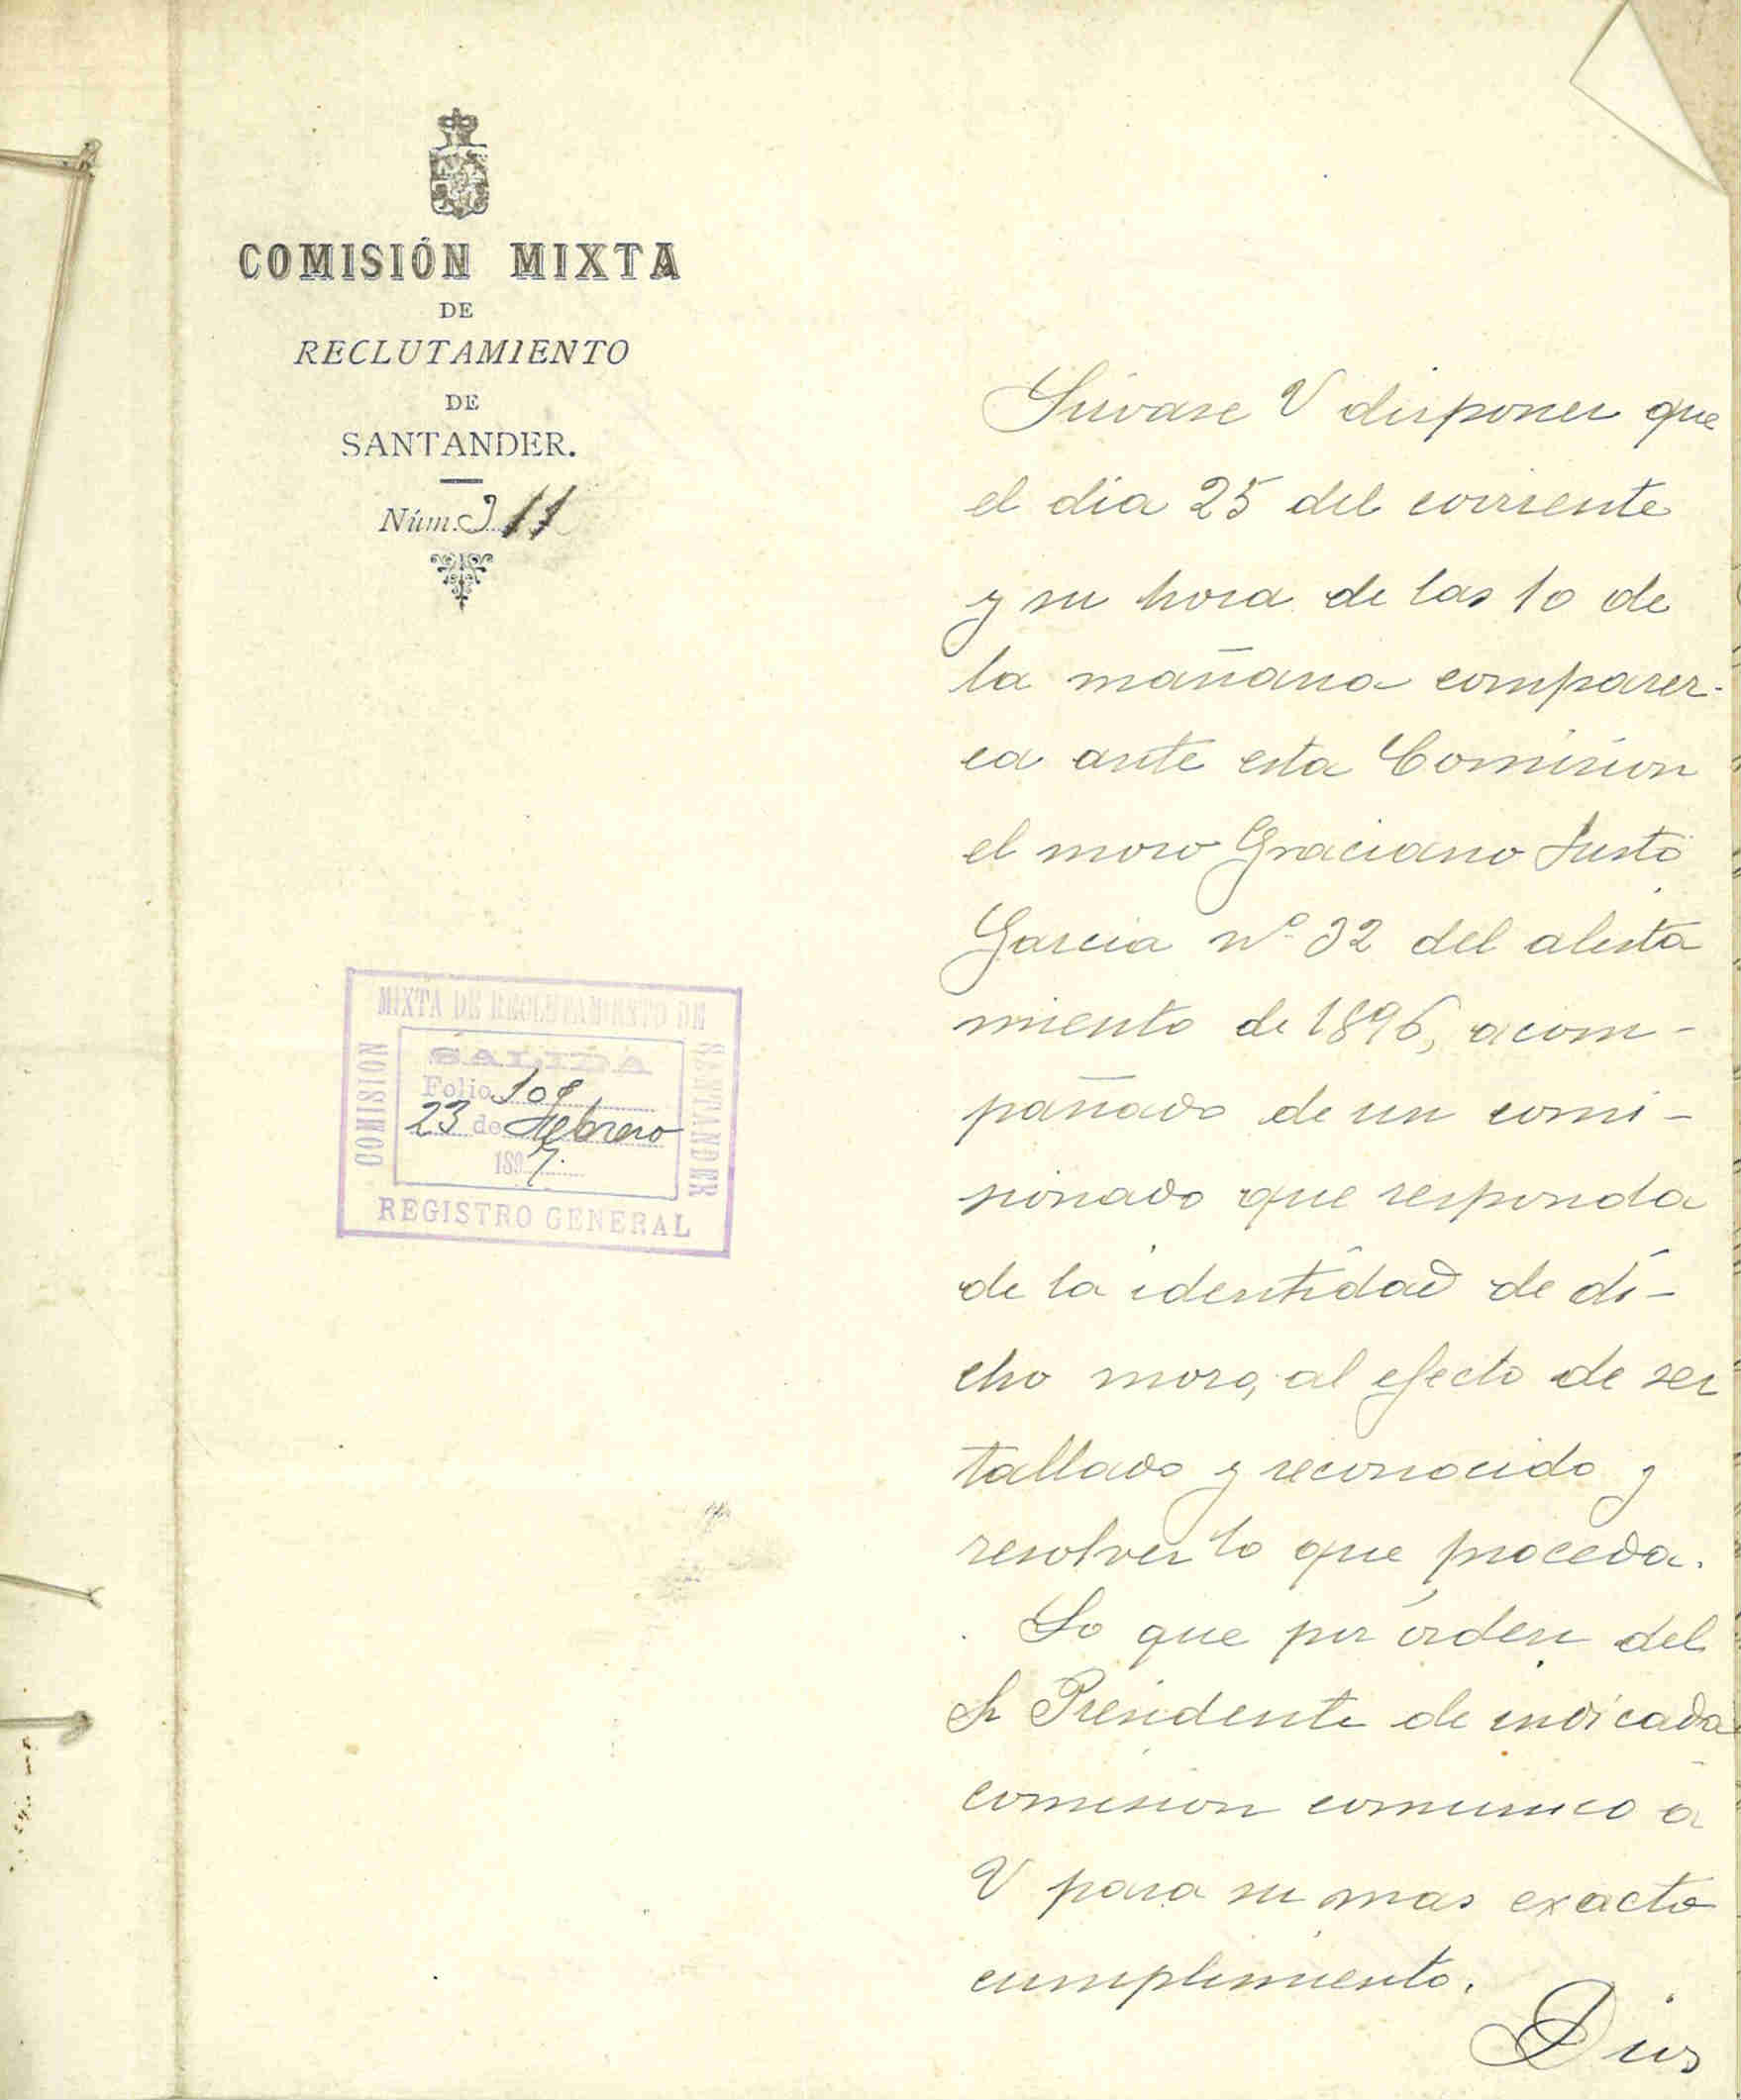 COMISIÓN MIXTA
DE
RECLUTAMIENTO
DE
SANTANDER.
Núm. 311
MIXTA DE RECLUTAMIENTO DE
COMISION
SANTANDER
SALIDA
Folio 109
23 de Febrero
1897.
REGISTRO GENERAL
Sirvase V disponer que
el dia 25 del corriente
y su hora de las 10 de
la mañana comparez-
ca ante esta Comision
el mozo Graciano Justo
Garcia nº 32 del alista
miento de 1896, acom-
pañado de un comi-
sionado que responda
de la identidad de di-
cho mozo, al efecto de ser
tallado y reconocido y
resolver lo que proceda.
Lo que por órden del
Sr Presidente de indicada
comision comunico á
V para su mas exacto
cumplimiento.
Dios